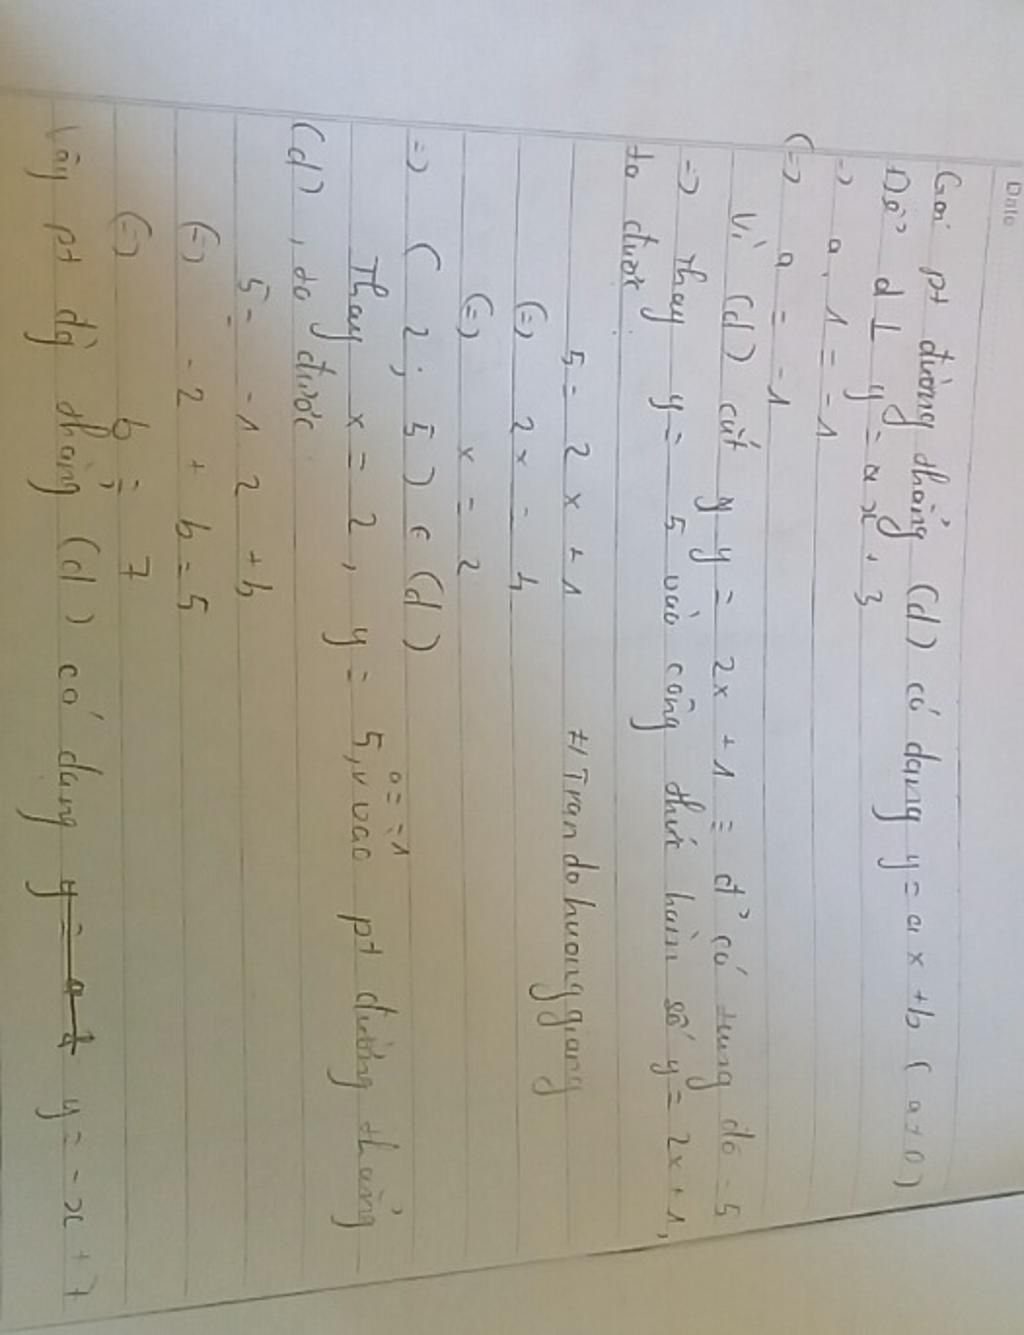 Date
Gọi pt đường thẳng (d) có dạng y = ax + b ( a ≠ 0 )
Để d ⊥ y = x + 3
=> a . 1 = -1
(=) a = -1
Vì (d) cắt y = 2x + 1 = đ' có tung độ = 5
=> Thay y = 5 vào công thức hàm số y = 2x + 1,
ta được:
5 = 2x + 1
t/ Trandohuonggiang
(=) 2x = 4
(=) x = 2
=> ( 2 ; 5 ) ∈ (d)
a = -1
Thay x = 2, y = 5, vào pt đường thẳng
(d), ta được:
5 = -1 2 + b
(=) -2 + b = 5
(=) b = 7
Vậy pt đg thẳng (d) có dạng y = -x + 7